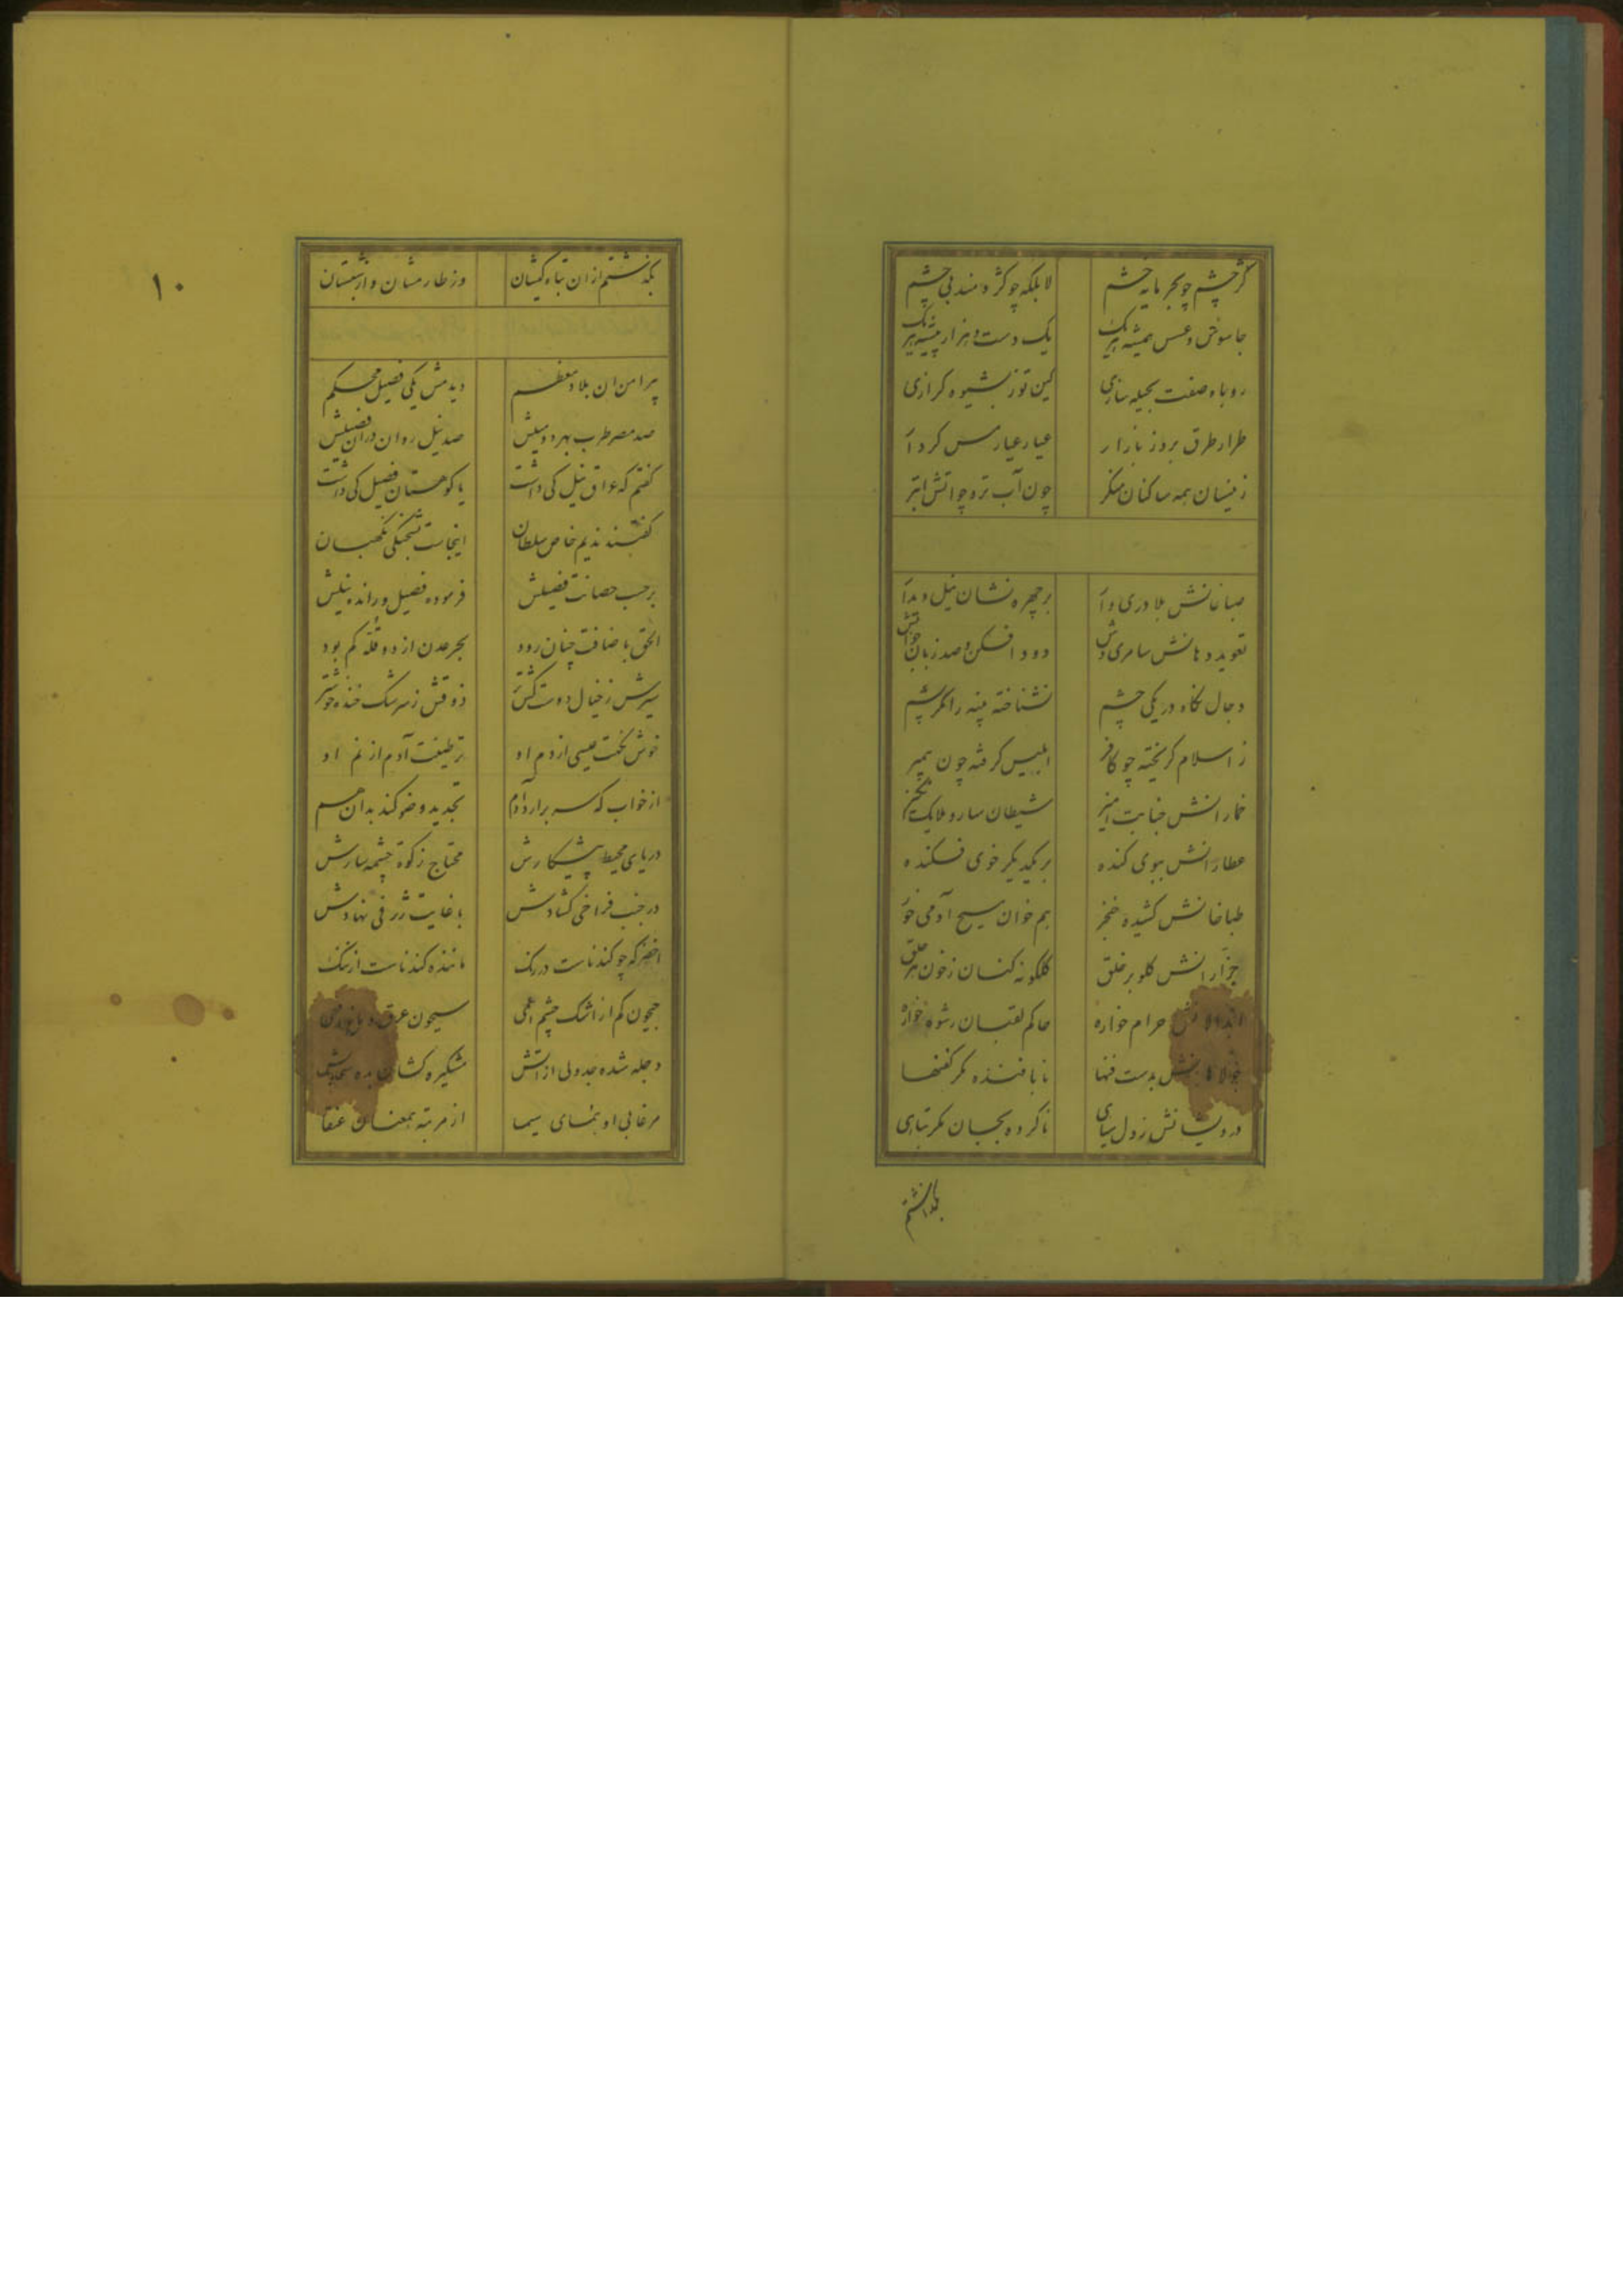 کژچشم چو بحر مایه خشم لا بلکه چو کژدمند بی چشم
جاسوس و عسس همیشه یک دست و هزار
روباه صفت بحیله سازی کین توز بشیوه کرازی
طرار طرق بروز بازار عیار عیار مس کردار
زینسان همه ساکنان منکر چون آب تر و چو آتش ابتر
صباغانش بلادری وار بر چهره نشان نیل
تعوید دهانش سامری وش دود افکن و صد زبان چو آتش
دجال نکاه در یکی چشم نشناخته پنبه را مکر پشم
ز اسلام کریخته چو کافر ابلیس کرفته چون پیمبر
خمارانش جنابت آمیز شیطان سار و ملایک
عطارانش ببوی کنده بر یکدیکر خوی فکنده
طباخانش کشیده خنجر هم خوان مسیح آدمی خور
جزارانش کلو بر خلق کلکونه کنان ز خون هر حلق
حرام خواره حاکم لقبان رشوه خواره
بدست فنها نابافنده مکر کفنها
درویشانش ز دل سیاهی ناکرده بجسان مکر تباهی
بکذشتم
۱۰
بکذشتم از ان تباه کیشان وز طارمشان و از شبستان
پیرامن ان بلاد معظم دیدمش یکی فصیل محکم
صد مصر طرب بهر دو میلش صد نیل روان در ان فصیلش
کفتم که عراق نیل کی داشت یا کوهستان فصیل کی داشت
کفتند ندیم خاص سلطان اینجاست نکهبان
بر حسب حصانت فصیلش فرموده فصیل و رانده نیلش
الحق باضافت چنان رود بحر عدن از دو قله کم بود
سیرش ز خیال دوست کش‌تر ذوقش ز سرشک خنده خوشتر
خوش نکهت عیسی از دم او تر طینت آدم از نم او
از خواب که سر برارد آدم تجدید وضو کند بدان هم
دریای محیط پیشکارش محتاج زکوة چشمه سارش
در جنب فراخی کشادش با غایت ژرفی نهادش
اخضر که چو کندناست در رنک ماننده کندناست از ننک
جیحون کم از اشک چشم اعمی سیحون عرق
دجله شده جدولی از آتش مشکیره کشان
مرغابی او بنمای سیما از مرتبه همعنان عنقا